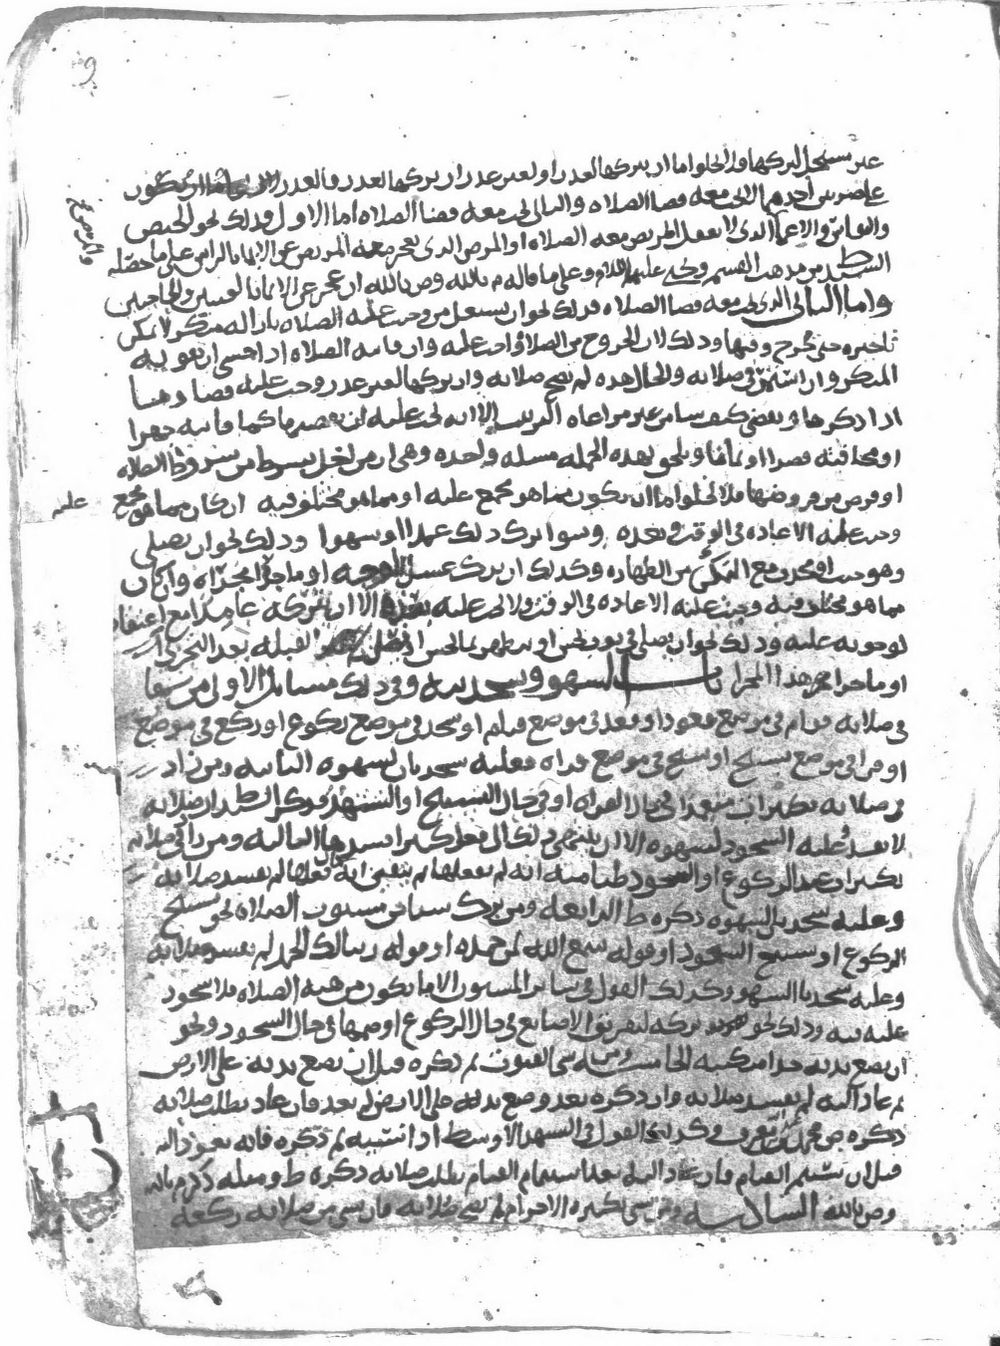 غير مستحل لتركها فلا يخلوا ما ان يتركها لعدر او لغير عدر ان تركها لعدر فالعدر
على ضربين احدهما لا يجب معه قضا الصلاه والثاني يجب معه قضا الصلاه اما الاول فذلك نحو الحيض
والنفاس والاغما الدى لا يعقل المريض معه الصلاه او المرض الدى يعجز معه المريض عن الايما بالراس على ما حصله
السيد ط من مدهب القسم ويحيى عليهما السلام وعلى ما قاله م بالله وص بالله ان عجز عن الايما بالعينين والحاجبين
واما الثاني الدى يجب معه قضا الصلاه فدلك نحو ان يشتغل من وجبت عليه الصلاه بازاله منكر لا يمكن
تاخيره حتى يخرج وقتها ودلك لان الخروج من الصلاه واجب عليه وان فاته الصلاه ادا خشى ان يفوته
المنكر وان استمر في صلاته والحال هده لم تصح صلاته وان تركها لغير عدر وجب عليه قضاوها
ادا دكرها ويقضى كيف شا من غير مراعاه الترتيب الا انه يجب عليه ان يقضيها كما فاتته جهرا
او مخافته قصرا او تماما ويلحق بهده الجمله مسله واحده وهى ان من اخل بشرط من شروط الصلاه
او فرض من فروضها فلا يخلوا ما ان يكون مما هو مجمع عليه او مما هو مختلف فيه ان كان مما هو مجمع عليه
وجب عليه الاعاده في الوقت وبعده وسوا ترك دلك عمدا او سهوا ودلك نحو ان يصلى
وهو جنب او محدث مع التمكن من الطهاره وكدلك ان ترك غسل الوجه او ما جرا مجراه وان كان
مما هو مختلف فيه وجبت عليه الاعاده في الوقت ولا يجب عليه بعده الا ان يتركه عامدا مع اعتقاد
لوجوبه عليه ودلك نحو ان يصلى في ثوب نجس او يتطهر بما نجس القبله بعد التحرى
او ما جرا هدا المجرا باب السهو وسجدتيه وفي دلك مسايل الاولى من سها
في صلاته فقام في موضع قعود او قعد في موضع قيام او سجد في موضع ركوع او ركع في موضع
او قرا في موضع تسبيح او سبح في موضع قراه فعليه سجدتان لسهوه الثانيه ومن زاد
في صلاته تكبيرات متعمدا في حال القراه او في حال التسبيح او التشهد دكر السيد ط ان صلاته
لا تفسد وعليه السجود لسهوه الا ان ينتهى دلك الى فعل كثير افسدها الثالثه ومن زاد في صلاته
تكبيرات عند الركوع او السجود ظنا منه انه لم يفعلها ثم تيقن انه فعلها لم تفسد صلاته
وعليه سجدتان لسهوه دكره ط الرابعه ومن ترك شيا من مسنون الصلاه نحو تسبيح
الركوع او تسبيح السجود او قوله سمع الله لمن حمده او قوله ربنا لك الحمد لم تفسد صلاته
وعليه سجدتا السهو وكدلك القول في ساير المسنون الا ما يكون من هيه الصلاه فلا سجود
عليه فيه ودلك نحو تركه لتفريق الاصابع في حال الركوع او ضمها في حال السجود ونحو
ان يضع يديه حدا منكبيه الخامسه ومن نسى القنوت ثم دكره قبل ان يضع يديه على الارض
ثم عاد اليه لم تفسد صلاته وان دكره بعد وضع يديه على الارض لم يعد فان عاد بطلت صلاته
دكره ص وكدلك القول في التشهد الاوسط ادا نسيه ثم دكره فانه يعود اليه
قبل ان يستتم القيام فان عاد اليه بعد استتمام القيام بطلت صلاته دكره ط ومثله دكر م بالله
وص بالله السادسه ومن نسى تكبيره الاحرام لم تصح صلاته فان نسى من صلاته ركعه